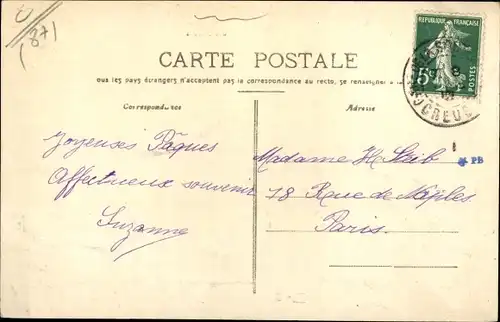 (87)
RÉPUBLIQUE FRANÇAISE
5c
POSTES
CREUSE
CARTE POSTALE
ous les pays étrangers n'acceptent pas la correspondance au recto, se renseigner
Correspondance
Adresse
Joyeuses Pâques
Affectueux souvenir
Suzanne
Madame H. Staib
78 Rue de Naples
Paris.
PB